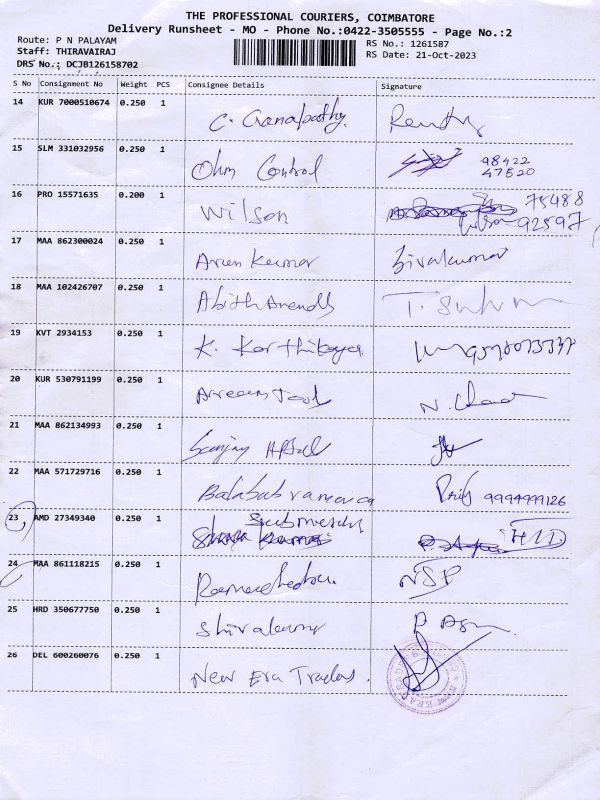 THE PROFESSIONAL COURIERS, COIMBATORE
Delivery Runsheet - MO - Phone No.:0422-3505555 - Page No.:2
Route: P N PALAYAM
RS No.: 1261587
Staff: THIRAVAIRAJ
RS Date: 21-Oct-2023
DRS No.: DCJB126158702
S No Consignment No Weight PCS Consignee Details Signature
14 KUR 7000510674 0.250 1 C. Ganapathy.
15 SLM 331032956 0.250 1 Ohm Control 98422
47520
16 PRO 15571635 0.200 1 Wilson 75488
Wilson 92597
17 MAA 862300024 0.250 1 Arun Kumar Sivakumar
18 MAA 102426707 0.250 1
19 KVT 2934153 0.250 1 K. Karthikeyan
20 KUR 530791199 0.250 1
21 MAA 862134993 0.250 1 Sanjay
22 MAA 571729716 0.250 1 9994999126
23 AMD 27349340 0.250 1
24 MAA 861118215 0.250 1 NSP
25 HRD 350677750 0.250 1 Shivakumar
26 DEL 600260076 0.250 1 New Era Trades.